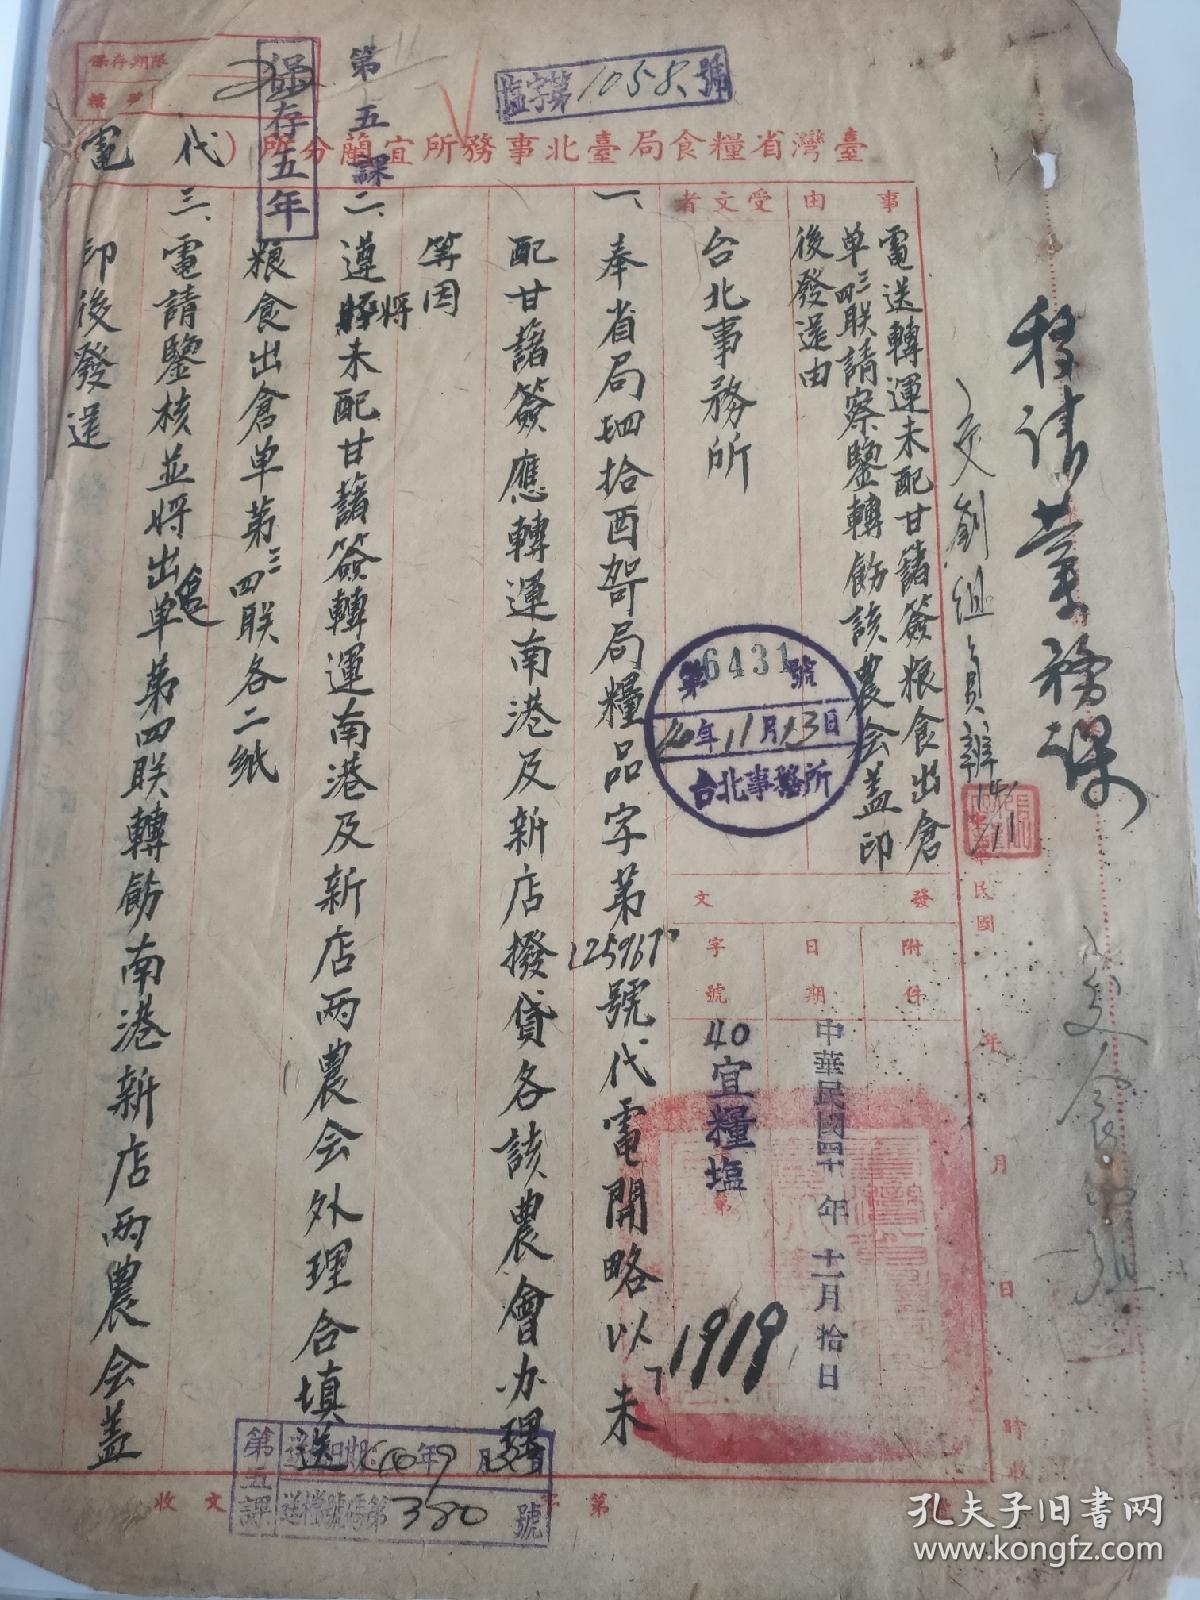 塩字第1058號
臺灣省糧食局臺北事務所宜蘭分所（
代電
保存期限
檔
保存五年
第五課
移請業務課
交劉組員辦
事由
電送轉運未配甘藷簽粮食出倉
单三四联請察鑒轉飭該農会盖印
後發還由
受文者
台北事務所
第6431號
40年11月13日
台北事務所
發文
附件
日期
中華民國四十年十一月拾日
字號
40宜糧塩
第
1919
中華民國
年
月
日
時
一、奉省局肆拾酉哿局糧品字第125967號代電開略以「未
配甘藷簽應轉運南港及新店撥貸各該農會办理」
等因
二、遵将未配甘藷簽轉運南港及新店两農会外理合填送
粮食出倉单第三四联各二紙
三、電請鑒核並将出倉单第四联轉飭南港新店两農会盖
印後發還
收文
字第
第五課
送檔號碼第380號
孔夫子旧书网
www.kongfz.com